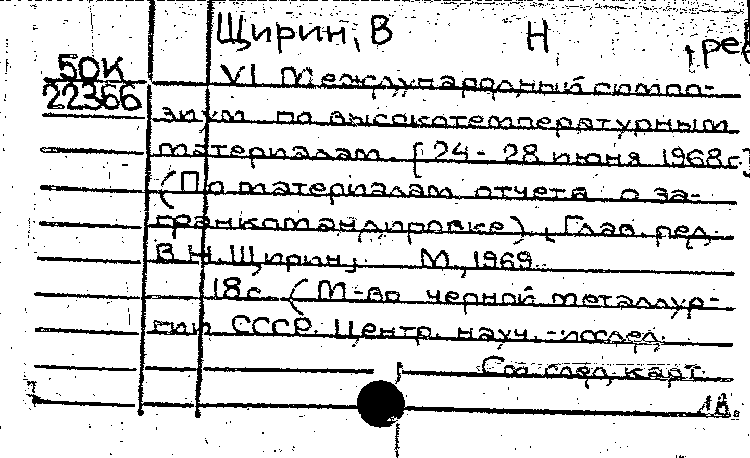 Щирин, В Н , ред
50К
22366
VI Международный симпо-
зиум по высокотемпературным
материалам. [24-28 июня 1968г.]
(По материалам отчета о за-
гранкомандировке). Глав. ред.
В.Н. Щирин. М., 1969.
18с. (М-во черной металлур-
гии СССР. Центр. науч.-исслед.
См. след. карт.